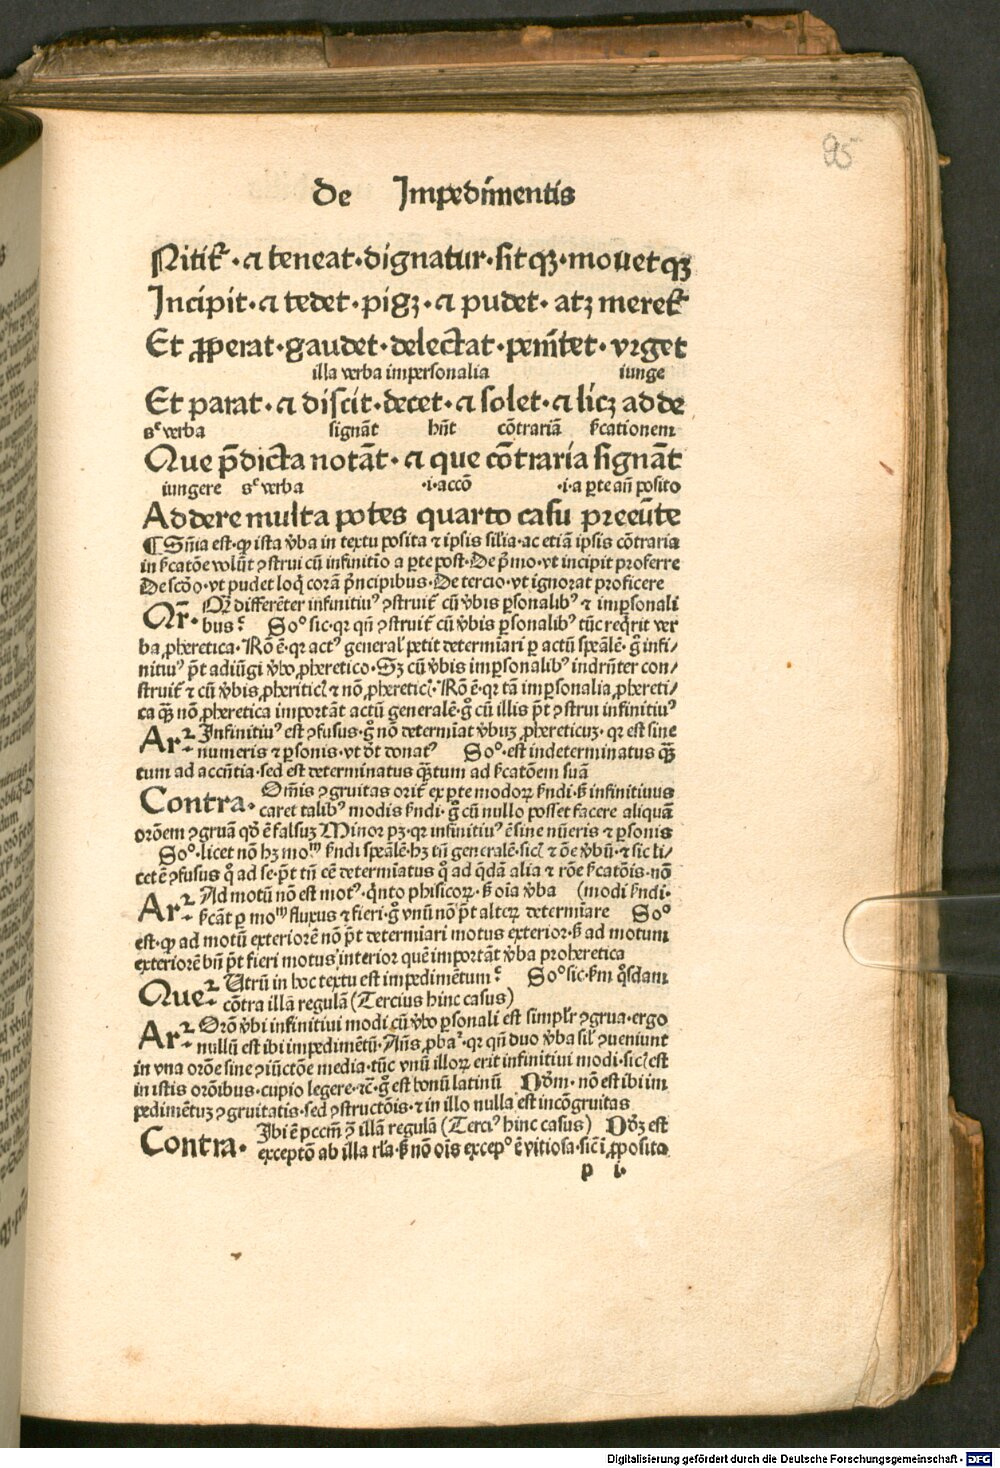 95
De Impedimentis
Nititr̃ · et teneat · dignatur · sitqꝫ · mouetqꝫ
Incipit · et tedet · pigꝫ · et pudet · atꝫ meretr̃
Et ꝓperat · gaudet · delectat · penītet · vrget
illa verba impersonalia iunge
Et parat · et discit · decet · et solet · et licꝫ adde
sꝫ verba signāt hñt cōtrariā sīcationem
Que p̄dicta notāt · et que cōtraria signāt
iungere sꝫ verba ·i·accō ·i·a ꝑte añ posito
Addere multa potes quarto casu preeūte
¶ Sn̄ia est · ꝙ ista v̄ba in textu posita ⁊ ipsis silia · ac etiā ipsis cōtraria
in sīcatōe volūt ꝯstrui cū infinitīo a ꝑte post · De p̄mo · vt incipit proferre
De scd̄o · vt pudet loq̄ corā p̄ncipibus · De tercio · vt ignorat proficere
Qr̄ differēter infinitiuꝰ ꝯstruit̄ cū v̄bis ꝑsonalibꝰ ⁊ imꝑsonali
Qr̄· bus? Soᵒ sic · qr qn̄ ꝯstruit̄ cū v̄bis ꝑsonalibꝰ tūc req̄rit ver
ba ꝓheretica · Rō ē · qr actꝰ general' petit determīari ꝑ actū spēalē · gͦ infi/
nitiuꝰ p̄t adiūgi v̄bo ꝓheretico · Sꝫ cū v̄bis imꝑsonalibꝰ indr̄nter con/
struit̄ ⁊ cū v̄bis ꝓheriticꝭ ⁊ nō ꝓhereticꝭ · Rō ē · qr tā imꝑsonalia ꝓhereti/
ca qꝫ̄ nō ꝓheretica importāt actū generalē · gͦ cū illis p̄t ꝯstrui infinitiuꝰ
Infinitiuꝰ est ꝯfusus · gͦ nō determīat v̄buꝫ ꝓhereticuꝫ · qr est sine
Ar̄· numeris ⁊ ꝑsonis · vt dt̄ donatꝰ Soᵒ · est indeterminatus qꝫ̄
tum ad accn̄tia · sed est determinatus qꝫ̄tum ad sīcatōem suā
Om̄is ꝯgruitas orit̄ ex ꝑte modoꝝ sīndi · sꝫ infinitiuus
Contra· caret talibꝰ modis sīndi · gͦ cū nullo posset facere aliquā
orōem ꝯgruā qd̄ ē falsuꝫ Minor pꝫ · qr infinitiuꝰ ē sine nūeris ⁊ ꝑsonis
Soᵒ · licet nō hꝫ moᵐ sīndi spēalē · hꝫ tn̄ generalē · sicꝭ ⁊ ōe v̄bū · ⁊ sic li/
cet ē ꝯfusus qͦ ad se · p̄t tn̄ cē determīatus qͦ ad q̄dā alia ⁊ rōe sīcatōis · nō
Ad motū nō est motꝰ · qͥnto phisicoꝝ · sꝫ oīa v̄ba (modi sīndi ·
Ar̄· sīcāt ꝑ moᵐ fluxus ⁊ fieri · gͦ vnū nō p̄t alteꝝ determīare Soᵒ
est · ꝙ ad motū exteriorē nō p̄t determīari motus exterior · sꝫ ad motum
exteriorē bn̄ p̄t fieri motus interior quē importāt v̄ba proheretica
Utrū in hoc textu est impedimētum? Soᵒ sic · sm̄ qͦsdam
Que· cōtra illā regulā (Tercius hinc casus)
Orō v̄bi infinitiui modi cū v̄bo ꝑsonali est simplr̄ ꝯgrua · ergo
Ar̄· nullū est ibi impedimētū · Añs ꝓbaꝛ · qr qn̄ duo v̄ba sil' ꝯueniunt
in vna orōe sine ꝯiūctōe media · tūc vnū illoꝝ erit infinitiui modi · sicꝭ est
in istis orōibus · cupio legere · ⁊c̄ · gͦ est bonū latinū Nōm · nō est ibi im
pedimētuꝫ ꝯgruitatis · sed ꝯstructōis · ⁊ in illo nulla est incōgruitas
Ibi ē pccm̄ ꝯ̄ illā regulā (Terciꝰ hinc casus) Nōꝫ est
Contra· exceptō ab illa rl'a · sꝫ nō oīs excepꝰ ē vitiosa · sic̄ ī ꝓposito
p i·
Digitalisierung gefördert durch die Deutsche Forschungsgemeinschaft - DFG